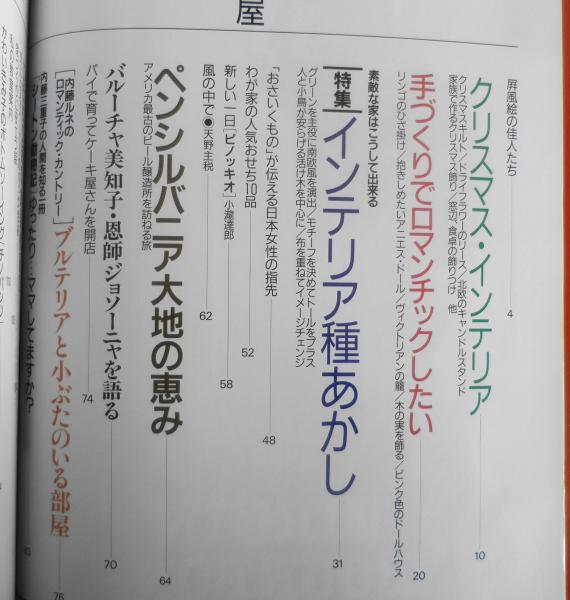 屋
屏風絵の佳人たち
4
クリスマス・インテリア
クリスマスキルト／ドライフラワーのリース／北欧のキャンドルスタンド
家族で作るクリスマス飾り／窓辺、食卓の飾りつけ 他
10
手づくりでロマンチックしたい
リンゴのひざ掛け／抱きしめたいアニエス・ドール／ヴィクトリアンの籠／木の実を飾る／ピンク色のドールハウス
20
素敵な家はこうして出来る
特集 インテリア種あかし
31
グリーンを主役に南欧風を演出／モチーフを決めてトールをプラス
人と小鳥が安らげる活け木を中心に／布を重ねてイメージチェンジ
「おさいくもの」が伝える日本女性の指先
48
わが家の人気おせち10品
52
新しい一日［ピノッキオ］小瀧達郎
58
風の中で●天野主税
62
ペンシルバニア大地の恵み
アメリカ最古のビール醸造所を訪ねる旅
64
バルーチャ美知子・恩師ジョソーニャを語る
70
パイで育ってケーキ屋さんを開店
74
［内藤ルネのロマンティック・カントリー］ブルテリアと小ぶたのいる部屋
76
内藤三重子の人間を知る一冊
［シートン動物記］ゆったり…ママしてますか？